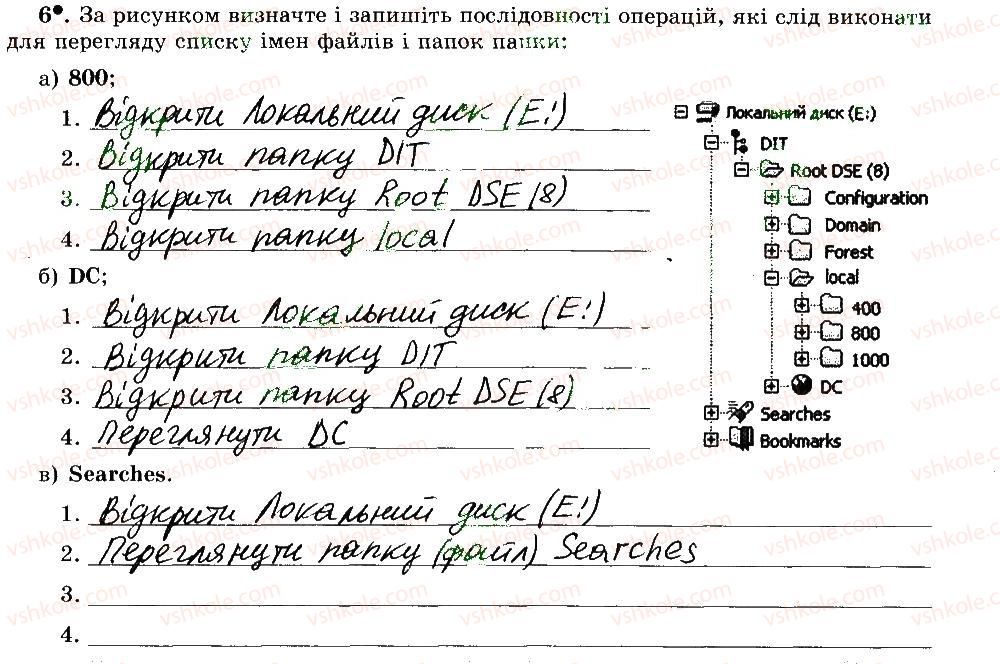 6●. За рисунком визначте і запишіть послідовності операцій, які слід виконати
для перегляду списку імен файлів і папок папки:
а) 800;
1. Відкрити Локальний диск (E:)
2. Відкрити папку DIT
3. Відкрити папку Root DSE (8)
4. Відкрити папку local
б) DC;
1. Відкрити Локальний диск (E:)
2. Відкрити папку DIT
3. Відкрити папку Root DSE (8)
4. Переглянути DC
в) Searches.
1. Відкрити Локальний диск (E:)
2. Переглянути папку (файл) Searches
3.
4.
Локальний диск (E:)
DIT
Root DSE (8)
Configuration
Domain
Forest
local
400
800
1000
DC
Searches
Bookmarks
vshkole.com